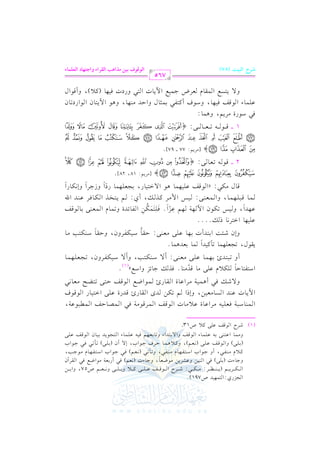 شرح المفيد (٧٩)
الوقوف بين مذاهب القراء واجتهاد العلماء
٥٦٧
ولا يتسع المقام لعرض جميع الآيات التي وردت فيها (كلا)، وأقوال
علماء الوقف فيها، وسوف أكتفي بمثال واحد منها، وهو الآيتان الواردتان
في سورة مريم، وهما:
١ ـ قوله تعالى: ﴿أَفَرَءَيْتَ الَّذِى كَفَرَ بِـَٔايَـٰتِنَا وَقَالَ لَأُوتَيَنَّ مَالًا وَوَلَدًا
﴿٧٧﴾ أَطَّلَعَ الْغَيْبَ أَمِ اتَّخَذَ عِندَ الرَّحْمَـٰنِ عَهْدًا ﴿٧٨﴾ كَلَّا سَنَكْتُبُ مَا يَقُولُ وَنَمُدُّ لَهُ
مِنَ الْعَذَابِ مَدًّا ﴿٧٩﴾﴾ [مريم: ٧٧ ـ ٧٩].
٢ ـ قوله تعالى: ﴿وَاتَّخَذُوا مِن دُونِ اللَّهِ ءَالِهَةً لِّيَكُونُوا لَهُمْ عِزًّا ﴿٨١﴾ كَلَّا
سَيَكْفُرُونَ بِعِبَادَتِهِمْ وَيَكُونُونَ عَلَيْهِمْ ضِدًّا ﴿٨٢﴾﴾ [مريم: ٨١، ٨٢].
قال مكي: «الوقف عليهما هو الاختيار، بجعلهما ردًّا وزجرًا وإنكارًا
لما قبلهما، والمعنى: ليس الأمر كذلك، أي: لم يتخذ الكافر عند الله
عهدًا، وليس تكون الآلهة لهم عزًّا. فلتمكُّن الفائدة وتمام المعنى بالوقف
عليها اخترنا ذلك....
وإن شئت ابتدأت بها على معنى: حقًّا سيكفرون، وحقًّا سنكتب ما
يقول، تجعلهما تأكيدًا لما بعدهما.
أو تبتدئ بهما على معنى: ألا سنكتب، وألا سيكفرون، تجعلهما
استفتاحًا للكلام على ما قدّمنا. فذلك جائز واسع»(١).
ولاشك في أهمية مراعاة القارئ لمواضع الوقف حتى تتضح معاني
الآيات عند السامعين، وإذا لم تكن لدى القارئ قدرة على اختيار الوقوف
المناسبة فعليه مراعاة علامات الوقف المرقومة في المصاحف المطبوعة،
(١) شرح الوقف على كلا ص٣١.
ومما اعتنى به علماء الوقف والابتداء وتابعهم فيه علماء التجويد بيان الوقف على
(بلى) والوقف على (نعم)، وكلاهما حرف جواب، إلا أن (بلى) تأتي في جواب
كلام منفي، أو جواب استفهام منفي، وتأتي (نعم) في جواب استفهام موجب،
وجاءت (بلى) في اثنين وعشرين موضعًا، وجاءت (نعم) في أربعة مواضع في القرآن
الكريم (ينظر: مكي: شرح الوقف على كلا وبلى ونعم ص٧٥، وابن
الجزري: التمهيد ص١٩٧).